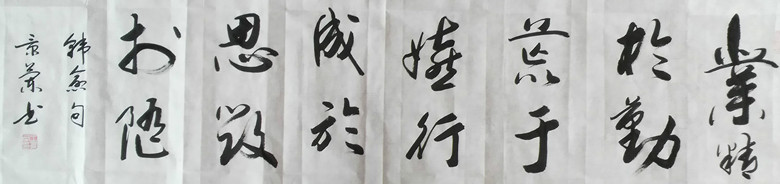 業精
於勤
荒于
嬉行
成於
思毀
於随
韩愈句
蘭书